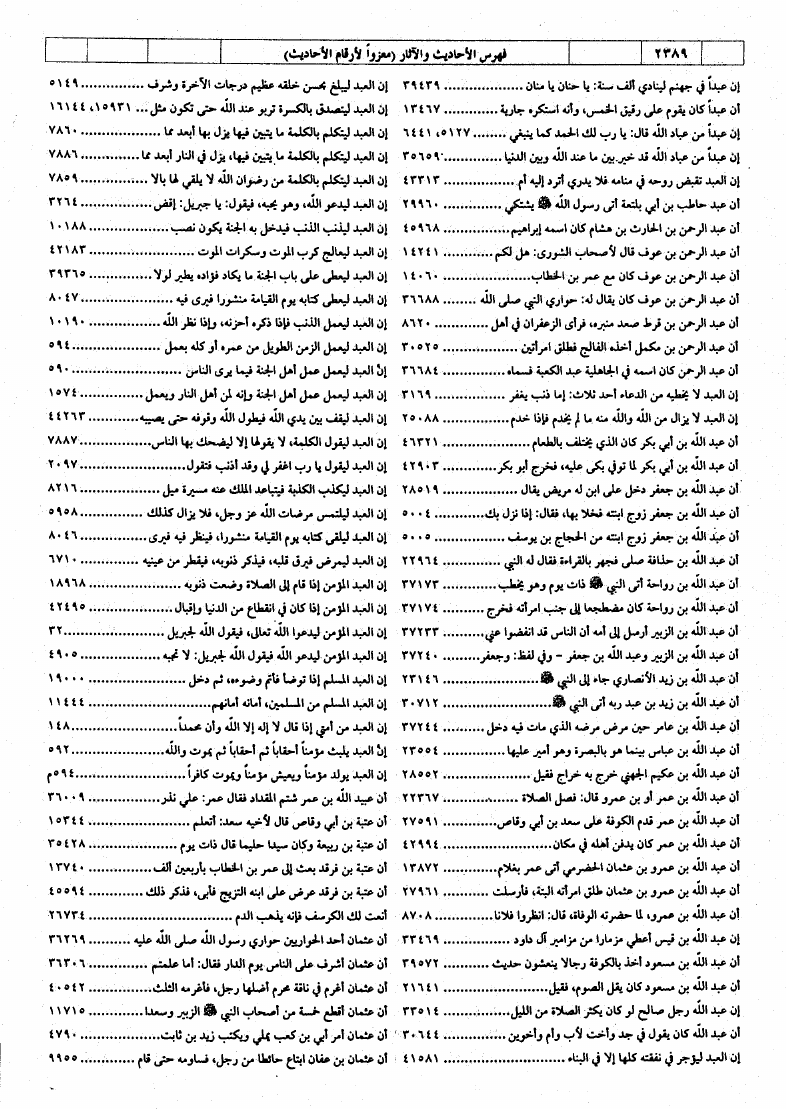 ٢٣٨٩
فهرس الأحاديث والآثار (معزواً لأرقام الأحاديث)
إن عبداً في جهنم لينادي ألف سنة: يا حنان يا منان .................... ٣٩٤٣٩
أن عبداً كان يقوم على رقيق الخمس، وأنه استكره جارية ................ ١٣٤٦٧
إن عبداً من عباد الله قال: يا رب لك الحمد كما ينبغي ......... ٥١٢٧، ٦٤٤١
إن عبداً من عباد الله قد خير بين ما عند الله وبين الدنيا .............. ٣٥٦٥٩
إن العبد تقبض روحه في منامه فلا يدري أترد إليه أم .................. ٤٣٣١٣
أن عبد حاطب بن أبي بلتعة أتى رسول الله ﷺ يشتكي ................. ٢٩٩٦٠
أن عبد الرحمن بن الحارث بن هشام كان اسمه إبراهيم ................. ٤٥٩٦٨
أن عبد الرحمن بن عوف قال لأصحاب الشورى: هل لكم ............... ١٤٢٤١
أن عبد الرحمن بن عوف كان مع عمر بن الخطاب ..................... ١٤٠٦٠
أن عبد الرحمن بن عوف كان يقال له: حواري النبي صلى الله ......... ٣٦٦٨٨
أن عبد الرحمن بن قرط صعد منبره، فرأى الزعفران في أهل ............. ٨٦٢٠
أن عبد الرحمن بن مكمل أخذه الفالج فطلق امرأتين .................. ٣٠٥٢٥
أن عبد الرحمن كان اسمه في الجاهلية عبد الكعبة فسماه ............... ٣٦٦٨٤
إن العبد لا يخطيه من الدعاء أحد ثلاث: إما ذنب يغفر ................ ٣١٦٩
إن العبد لا يزال من الله والله منه ما لم يخدم فإذا خدم ................. ٢٥٠٨٨
أن عبد الله بن أبي بكر كان الذي يختلف بالطعام .................... ٤٦٣٢١
أن عبد الله بن أبي بكر لما توفي بكى عليه، فخرج أبو بكر ............. ٤٢٩٠٣
أن عبد الله بن جعفر دخل على ابن له مريض يقال .................... ٢٨٥١٩
أن عبد الله بن جعفر زوج ابنته فخلا بها، فقال: إذا نزل بك ............ ٥٠٠٤
أن عبد الله بن جعفر زوج ابنته من الحجاج بن يوسف .................. ٥٠٠٥
أن عبد الله بن حذافة صلى فجهر بالقراءة فقال له النبي ................ ٢٢٩٦٤
أن عبد الله بن رواحة أتى النبي ﷺ ذات يوم وهو يخطب ............... ٣٧١٧٣
أن عبد الله بن رواحة كان مضطجعا إلى جنب امرأته فخرج ............ ٣٧١٧٤
أن عبد الله بن الزبير أرسل إلى أمه أن الناس قد انفضوا عني ............ ٣٧٢٣٣
أن عبد الله بن الزبير وعبد الله بن جعفر - وفي لفظ: وجعفر .......... ٣٧٢٤٠
أن عبد الله بن زيد الأنصاري جاء إلى النبي ﷺ ....................... ٢٣١٤٦
أن عبد الله بن زيد بن عبد ربه أتى النبي ﷺ ......................... ٣٠٧١٢
أن عبد الله بن عامر حين مرض مرضه الذي مات فيه دخل ............. ٣٧٢٤٤
أن عبد الله بن عباس بينما هو بالبصرة وهو أمير عليها ................ ٢٣٥٥٤
أن عبد الله بن عكيم الجهني خرج به خراج فقيل ...................... ٢٨٥٥٢
أن عبد الله بن عمر أو بن عمرو قال: فصل الصلاة ................... ٢٢٣٦٧
أن عبد الله بن عمر قدم الكوفة على سعد بن أبي وقاص ............... ٢٧٥٩١
أن عبد الله بن عمر كان يدفن أهله في مكان ......................... ٤٢٩٩٤
أن عبد الله بن عمرو بن عثمان الحضرمي أتى عمر بغلام ............... ١٣٨٧٢
أن عبد الله بن عمرو بن عثمان طلق امرأته البتة، فأرسلت .............. ٢٧٩٦١
أن عبد الله بن عمرو، لما حضرته الوفاة، قال: انظروا فلانا .............. ٨٧٠٨
إن عبد الله بن قيس أعطي مزمارا من مزامير آل داود .................. ٣٣٤٦٩
أن عبد الله بن مسعود أخذ بالكوفة رجالا ينعشون حديث ............. ٣٩٥٧٢
أن عبد الله بن مسعود كان يقل الصوم، فقيل ......................... ٢١٦٤١
إن عبد الله رجل صالح لو كان يكثر الصلاة من الليل ................. ٣٣٥١٤
أن عبد الله كان يقول في جد وأخت لأب وأم وأخوين ................. ٣٠٦٤٤
إن العبد ليؤجر في نفقته كلها إلا في البناء .......................... ٤١٥٨١
إن العبد ليبلغ بحسن خلقه عظيم درجات الآخرة وشرف ............... ٥١٤٩
إن العبد ليتصدق بالكسرة تربو عند الله حتى تكون مثل ... ١٥٩٣١، ١٦١٤٤
إن العبد ليتكلم بالكلمة ما يتبين فيها يزل بها أبعد مما ................ ٧٨٦٠
إن العبد ليتكلم بالكلمة ما يتبين فيها، يزل في النار أبعد مما ............ ٧٨٨٦
إن العبد ليتكلم بالكلمة من رضوان الله لا يلقي لها بالا ............... ٧٨٥٩
إن العبد ليدعو الله، وهو يحبه، فيقول: يا جبريل: إقض ................ ٣٢٦٤
إن العبد ليذنب الذنب فيدخل به الجنة يكون نصب ................... ١٠١٨٨
إن العبد ليعالج كرب الموت وسكرات الموت .......................... ٤٢١٨٣
إن العبد ليعطى على باب الجنة ما يكاد فؤاده يطير لولا ............... ٣٩٣٦٥
إن العبد ليعطى كتابه يوم القيامة منشورا فيرى فيه .................... ٨٠٤٧
إن العبد ليعمل الذنب فإذا ذكره أحزنه، وإذا نظر الله ................. ١٠١٩٠
إن العبد ليعمل الزمن الطويل من عمره أو كله بعمل ................... ٥٩٤
إنَّ العبد ليعمل عمل أهل الجنة فيما يرى الناس ....................... ٥٩٠
إن العبد ليعمل عمل أهل الجنة وإنه لمن أهل النار ويعمل .............. ١٥٧٤
إن العبد ليقف بين يدي الله فيطول الله وقوفه حتى يصيبه .............. ٤٤٢٦٣
إن العبد ليقول الكلمة، لا يقولها إلا ليضحك بها الناس ................ ٧٨٨٧
إن العبد ليقول يا رب اغفر لي وقد أذنب فتقول ....................... ٢٠٩٧
إن العبد ليكذب الكذبة فيتباعد الملك عنه مسيرة ميل ................. ٨٢١٦
إن العبد ليلتمس مرضات الله عز وجل، فلا يزال كذلك ................ ٥٩٥٨
إن العبد ليلقى كتابه يوم القيامة منشورا، فينظر فيه فيرى .............. ٨٠٤٦
إن العبد ليمرض فيرق قلبه، فيذكر ذنوبه، فيقطر من عينيه ............. ٦٧١٠
إن العبد المؤمن إذا قام إلى الصلاة وضعت ذنوبه ..................... ١٨٩٦٨
إن العبد المؤمن إذا كان في انقطاع من الدنيا وإقبال .................. ٤٢٤٩٥
إن العبد المؤمن ليدعوا الله تعالى، فيقول الله لجبريل ..................... ٣٢
إن العبد المؤمن ليدعو الله فيقول الله لجبريل: لا تجبه .................. ٤٩٠٥
إن العبد المسلم إذا توضأ فأتم وضوءه، ثم دخل ...................... ١٩٠٠٠
إن العبد المسلم من المسلمين، أمانه أمانهم ........................... ١١٤٤٤
إن العبد من أمتي إذا قال لا إله إلا الله وأن محمداً ..................... ١٤٨
إنَّ العبد يلبث مؤمناً أحقاباً ثم أحقاباً ثم يموت والله ................... ٥٩٢
إن العبد يولد مؤمناً ويعيش مؤمناً ويموت كافراً ...................... ٥٩٤م
أن عبيد الله بن عمر شتم المقداد فقال عمر: علي نذر ................. ٣٦٠٠٩
أن عتبة بن أبي وقاص قال لأخيه سعد: أتعلم ........................ ١٥٣٤٤
أن عتبة بن ربيعة وكان سيدا حليما قال ذات يوم ..................... ٣٥٤٢٨
أن عتبة بن فرقد بعث إلى عمر بن الخطاب بأربعين ألف .............. ١٣٧٤٠
أن عتبة بن فرقد عرض على ابنه التزيج فأبى، فذكر ذلك .............. ٤٥٥٩٤
أنعت لك الكرسف فإنه يذهب الدم ................................ ٢٦٧٣٤
أن عثمان أحد الحواريين حواري رسول الله صلى الله عليه .............. ٣٦٢٦٩
أن عثمان أشرف على الناس يوم الدار فقال: أما علمتم ............... ٣٦٣٠٦
أن عثمان أغرم في ناقة محرم أضلها رجل، فأغرمه الثلث ............... ٤٠٥٤٢
أن عثمان أقطع خمسة من أصحاب النبي ﷺ الزبير وسعدا ............. ١١٧١٥
أن عثمان أمر أبي بن كعب يملي ويكتب زيد بن ثابت .................. ٤٧٩٠
أن عثمان بن عفان ابتاع حائطا من رجل، فساومه حتى قام ............ ٩٩٥٥